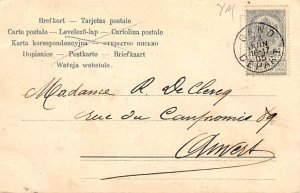 YM
Brefkort - Tarjetas postale
Carte postale - Levelező-lap - Cartolina postale
Karta korespondencyjna - открытое письмо
Dopisnice - Postkarte - Briefkaart
Wateja webstule.
GAND
JUIN
1905
DEPART
Madame R. DeClercq
rue du Canpromis 89
Anvers